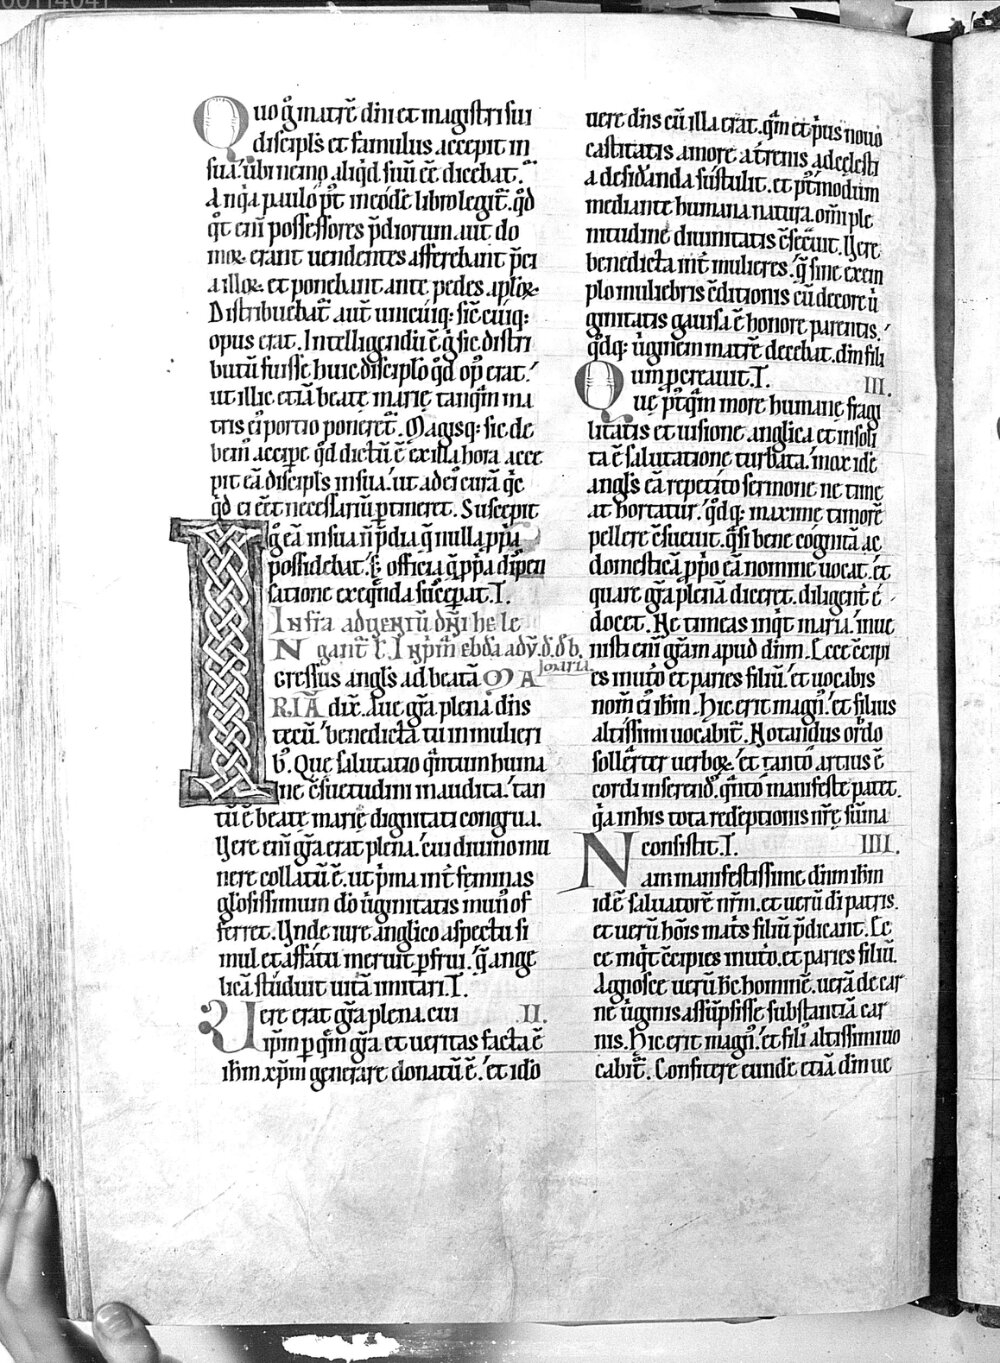 Quo g̊ matrē dñi et magistri sui
discipl̃s et famulus accepit in
sua. ubi nec ip̃o aliq̇d suū ee͂ dicebat.
A nq̇a paulo p̃t in eode͂ libro legit᷑. q̇d
q̇t eñi possessores p̃diorum aut do
moꝝ erant uendentes afferebant p̃ci
a illoꝝ. et ponebant ante pedes apl̃oꝝ
Distribuebat᷑ aut̃ unicuiq; sic̃ cuiq;
opus erat. Intelligendū ē q̇ sic distri
butū fuisse huic discipl̃o q̇d op̃ erat.
ut illic etiā beatę marię tanq̃m ma
tris ei portio poneret᷑. Magisq; sic de
bem̃ accipe q̇d dictū ē ex illa hora acce
pit eā discipl̃s in sua. ut ad ei curā q̇c
q̇d ei eēt necessariū ptineret. Suscepit
g̊ eā in sua ñ p̃dia q̇ nulla ppa
possidebat. s; officia q̇ ppa dispen
satione exeqũda susceperat. I.
Infra aduentū dñi he le
gant᷑ Ł. In p̃m ebda adv. d. d. b.
Ioaria
Ngressus angl̃s ad beatā MA
RIĀ dix̃. Aue gr̃a plena dñs
tecū. benedicta tu in mulieri
b;. Que salutatio q̃ntum huma
ne c̃suetudini inaudita. tan
tū ē beatę marię dignitati congrua.
Uere eñi gr̃a erat plena. cui diuino mu
nere collatū ē. ut p̃ma int̃ feminas
gl̃osissimum dõ ũginitatis mun᷑ of
ferret. Unde iure anglico aspectu si
mul et affatu meruit pfrui. q̃ ange
licā studuit uitā imitari. I.
Uere erat gr̃a plena. cui II.
ip̃m p q̃m gr̃a et ueritas facta ē
ih̃m xp̃m generare donatū ē. et ido
uere dñs cū illa erat. q̃m et p̃us nouo
castitatis amore a t̃renis ad celesti
a desid̃anda sustulit. et p̃t modum
mediante humana natura om̃i ple
nitudine diuinitatis c̃sec̃uit. Uere
benedicta int̃ mulieres. q̃ sine exem
plo muliebris c̃ditionis cū decore ũ
ginitatis gauisa ē honore parentis.
q̇dq; ũginem matrē decebat. dm̃ fili
um percauit. I. III.
Que p̃tq̃m more humanę fragi
litatis et uisione anglica et insoli
ta ē salutatione turbata. mox idē
angl̃s eā repetito sermone ne time
at hortatur. q̇dq; maxime timorē
pellere c̃sueuit. q̃si bene cognitā ac
domesticā pp̃o eā nomine uocat. et
quare gr̃a plenā diceret. diligent̃ e
docet. Ne timeas inq̇t maria. inue
nisti eñi gr̃am apud dñm. Ecce c̃cipi
es in ut̃o et paries filiū. et uocabis
nom̃ ei ih̃m. Hic erit magn᷑. et filius
altissimi uocabit᷑. Notandus ordo
soll̃erter uerboꝝ. et tanto artius ē
cordi inserend᷑. q̃nto manifeste patet.
q̇a in his tota redeptionis nr̃ę sum̃a
consistit. I. IIII.
Nam manifestissime dñm ih̃m
id ē saluatorē nr̃m. et uerū di patris.
et uerū hõis mat̃s filiū p̃dicant. Ec
ce inq̇t c̃cipies in ut̃o. et paries filiū.
Agnosce uerū h̃c hominē. uerā de car
ne ũginis assũpsisse substantiā car
nis. Hic erit magn᷑. et fili᷑ altissimi uo
cabit᷑. Confitere eundē etiā dm̃ ue